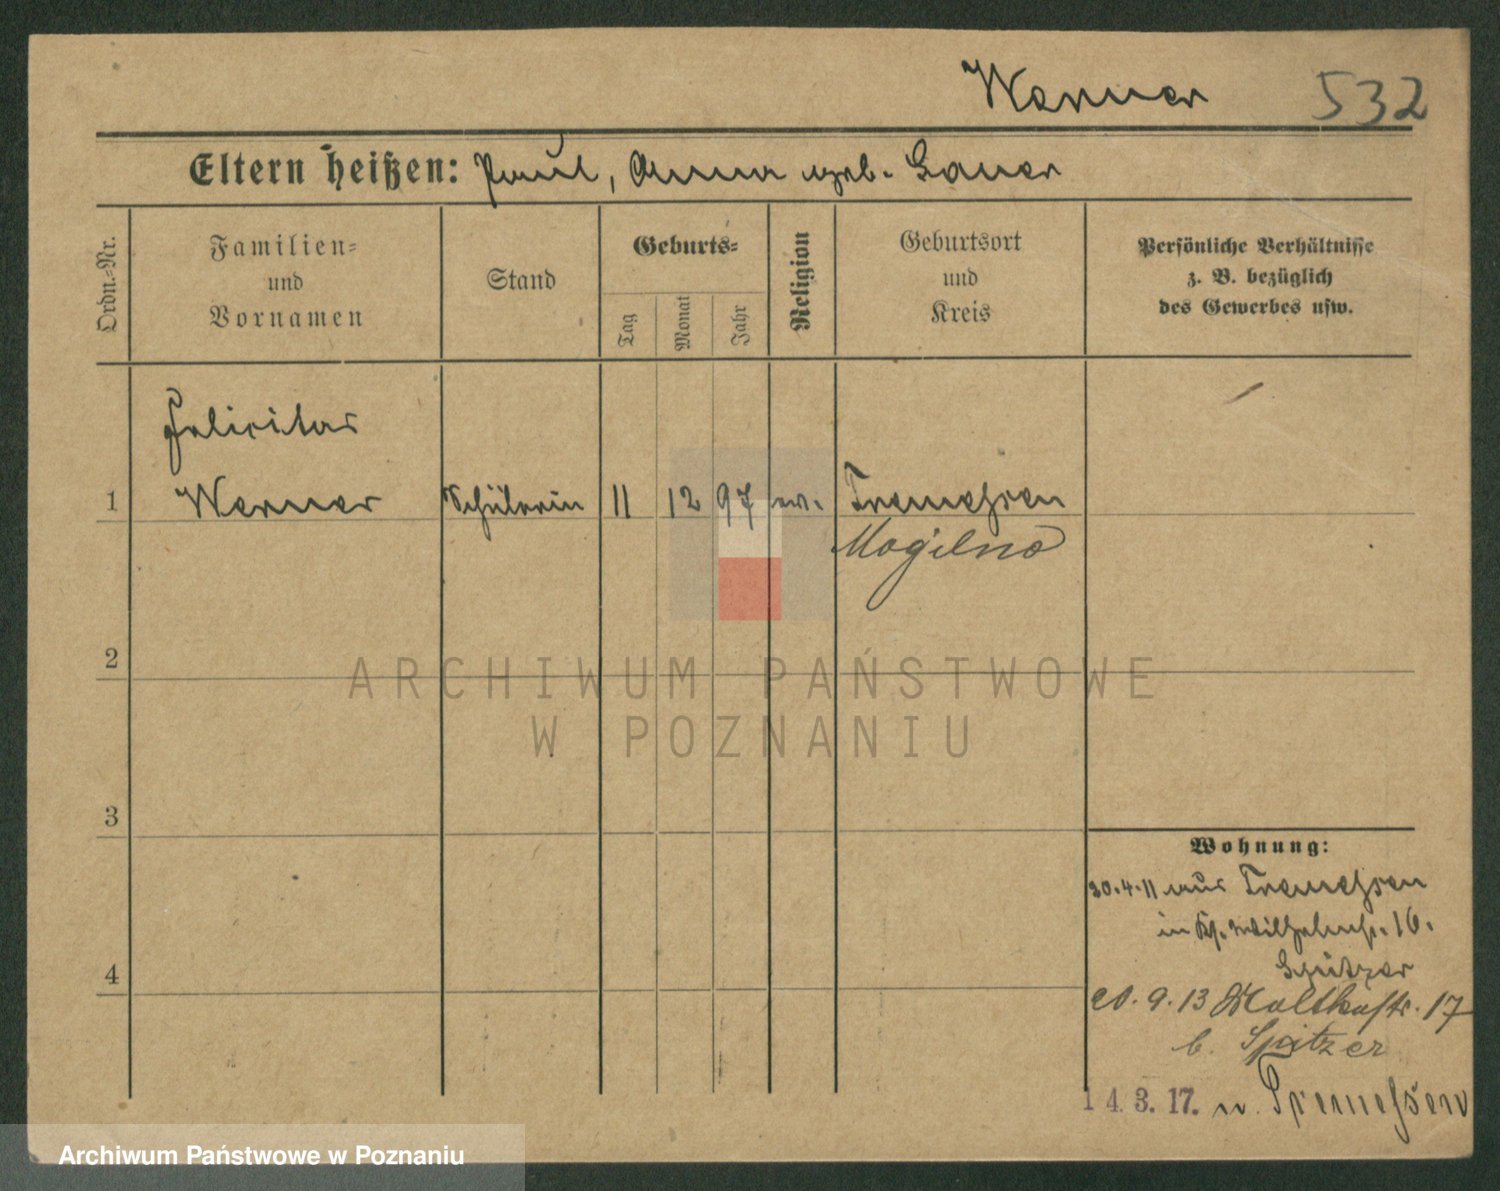 Werner 532
Eltern heißen: Paul, Anna geb. Sauer
Ordn.-Nr.
Familien=
und
Vornamen
Stand
Geburts=
Tag
Monat
Jahr
Religion
Geburtsort
und
Kreis
Persönliche Verhältnisse
z. B. bezüglich
des Gewerbes usw.
Felicitas
1 Werner Schülerin 11 12 97 ev. Tremessen
Mogilno
2
ARCHIWUM PAŃSTWOWE
W POZNANIU
3
Wohnung:
30.4.11 aus Tremessen
in Kl. Wilhelmstr. 16.
Spitzer
4
20.9.13 Moltkestr. 17
b. Spitzer
14.3.17. n. Tremessen
Archiwum Państwowe w Poznaniu